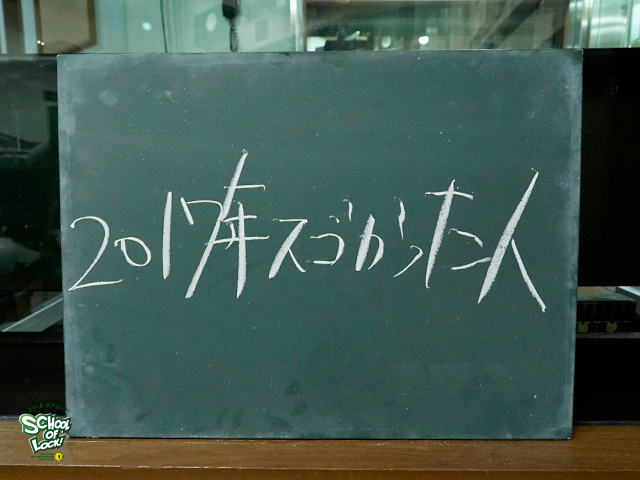 2017年スゴかった人
SCHOOL
OF
LOCK!